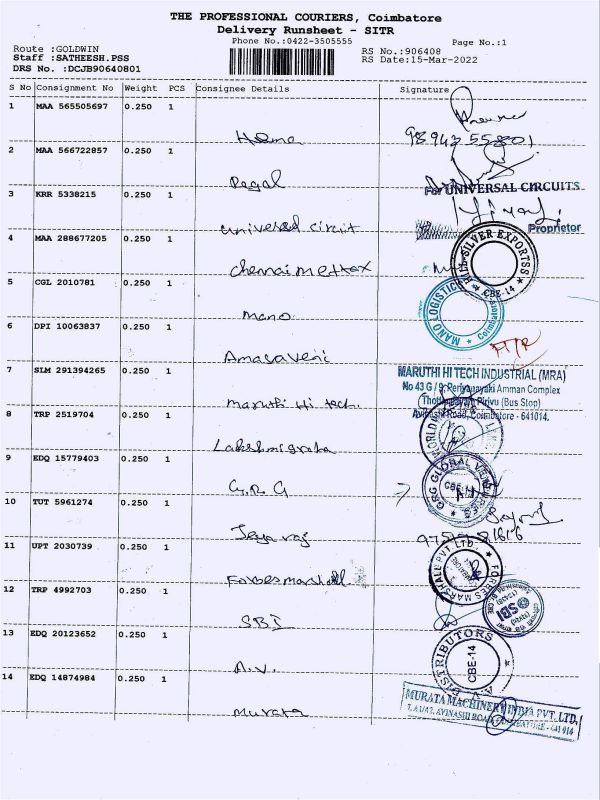 THE PROFESSIONAL COURIERS, Coimbatore
Delivery Runsheet - SITR
Phone No.:0422-3505555
Page No.:1
Route :GOLDWIN
Staff :SATHEESH.PSS
DRS No. :DCJB90640801
RS No.:906408
RS Date:15-Mar-2022
S No Consignment No Weight PCS Consignee Details Signature
1 MAA 565505697 0.250 1
Hema
2 MAA 566722857 0.250 1
Regal
For UNIVERSAL CIRCUITS
3 KRR 5338215 0.250 1
universal circuit
Proprietor
4 MAA 288677205 0.250 1
chennai mettex
SILVER EXPORTSS
CBE-14
5 CGL 2010781 0.250 1
Mano
MANO LOGISTICS
Coimbatore
6 DPI 10063837 0.250 1
Amasaveni
7 SLM 291394265 0.250 1
Maruthi Hi tech.
MARUTHI HI TECH INDUSTRIAL (MRA)
No 43 G / 9, Periyanayaki Amman Complex
Pirivu (Bus Stop)
Avinashi Road, Coimbatore - 641014.
8 TRP 2519704 0.250 1
9 EDQ 15779403 0.250 1
G.R.G
GRG GLOBAL
10 TUT 5961274 0.250 1
Jeya raj
11 UPT 2030739 0.250 1
Forbes marshall
FORBES MARSHALL PVT. LTD
12 TRP 4992703 0.250 1
SBI
SBI
13 EDQ 20123652 0.250 1
A.V.
DISTRIBUTORS
CBE-14
14 EDQ 14874984 0.250 1
Murata
MURATA MACHINERY INDIA PVT. LTD.
AVINASHI ROAD, COIMBATORE - 641 014